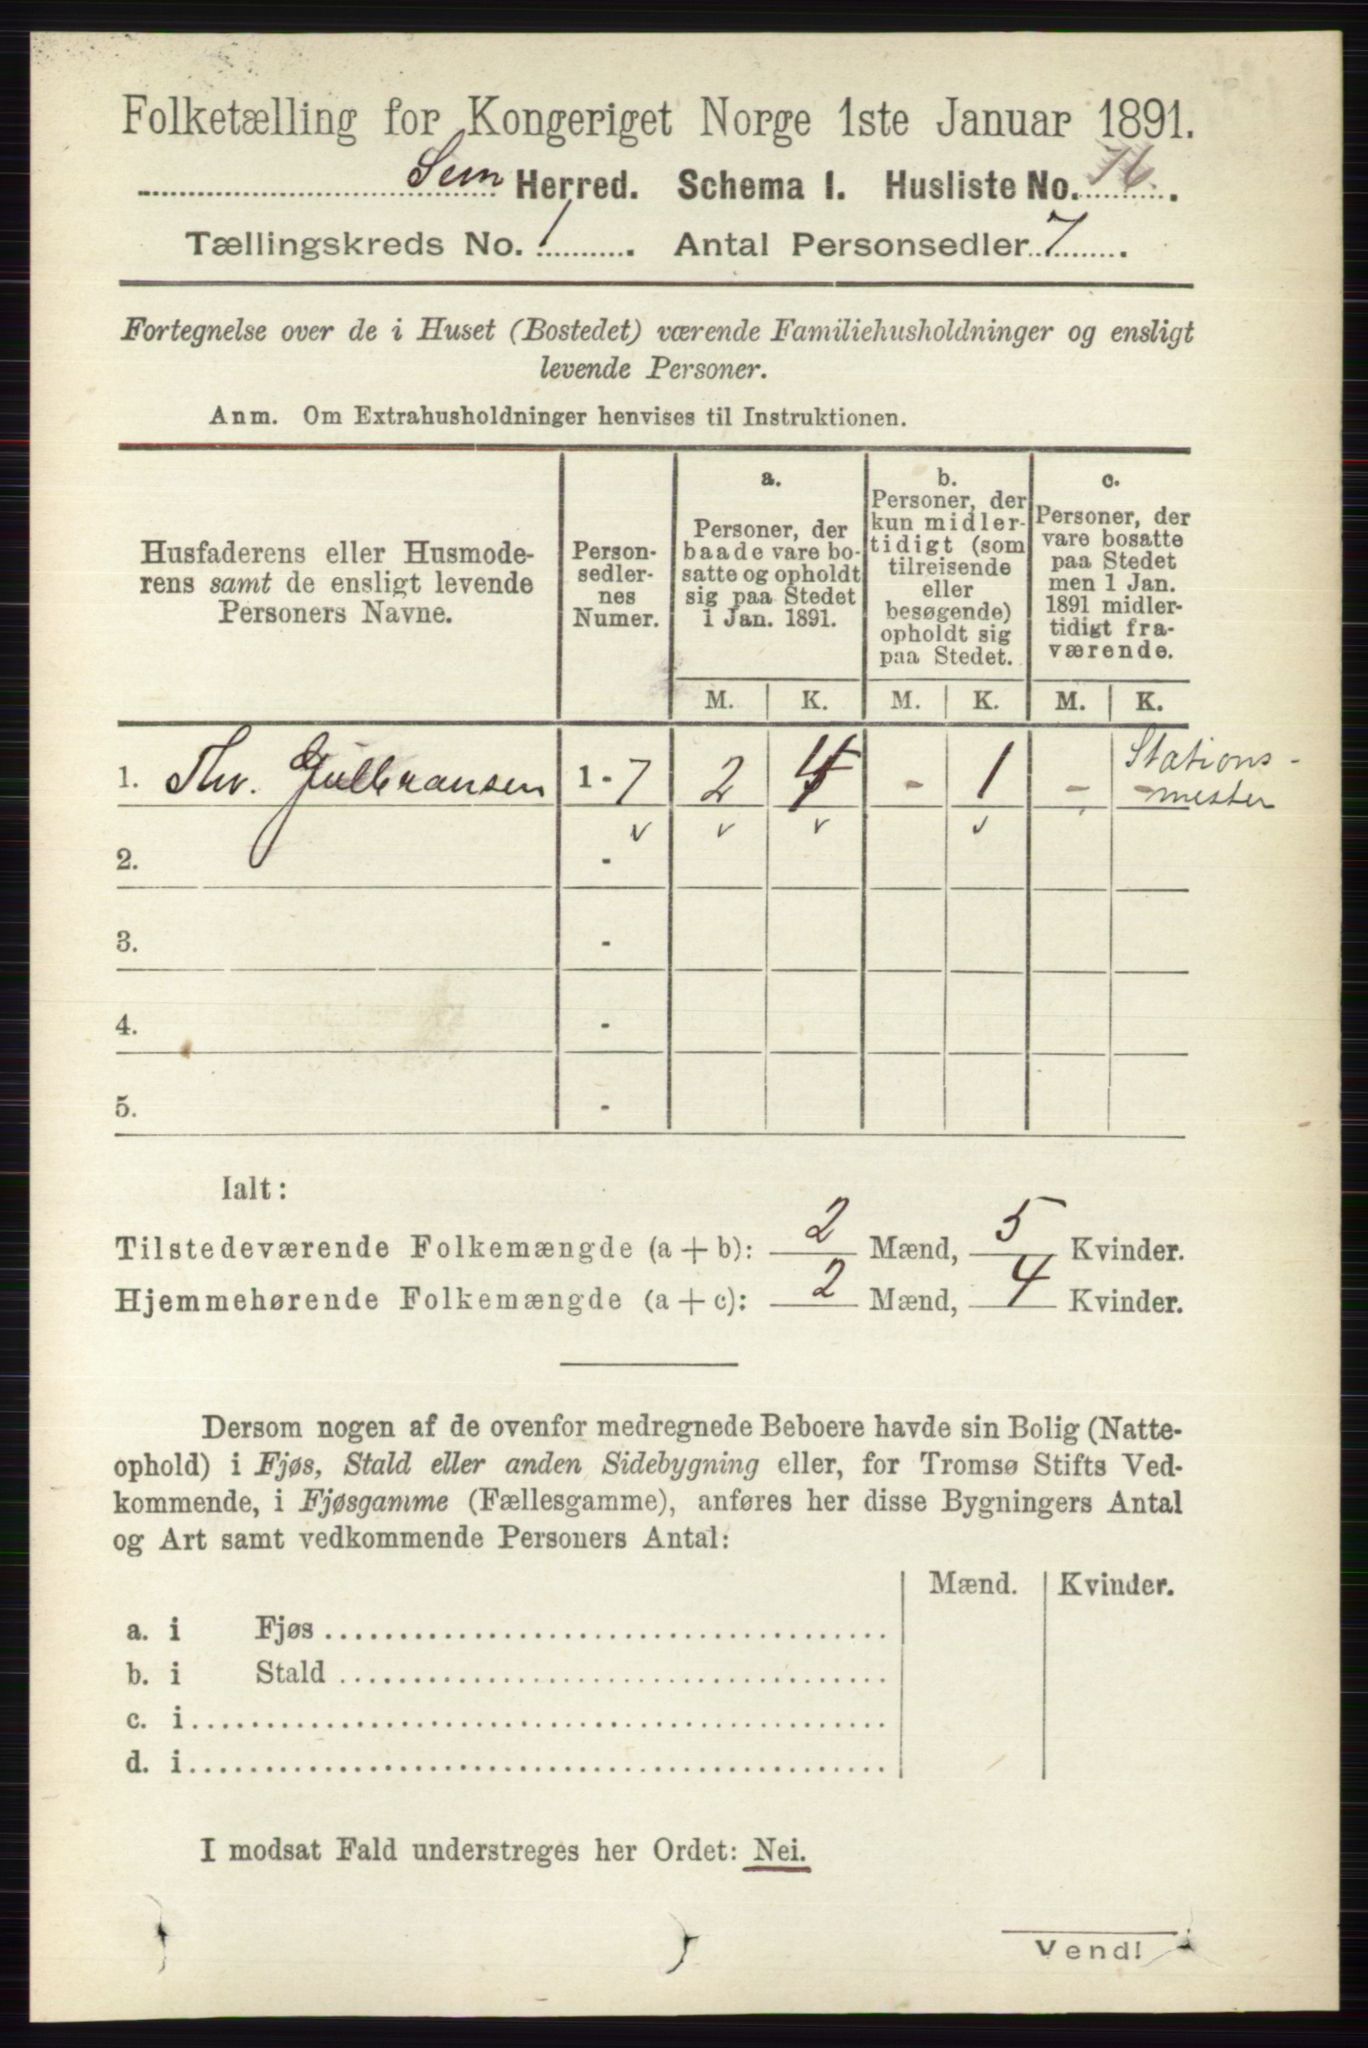 Folketælling for Kongeriget Norge 1ste Januar 1891.
Sem Herred. Schema I. Husliste No. 76.
Tællingskreds No. 1. Antal Personsedler 7.
Fortegnelse over de i Huset (Bostedet) værende Familiehusholdninger og ensligt
levende Personer.
Anm. Om Extrahusholdninger henvises til Instruktionen.
Husfaderens eller Husmode-
rens samt de ensligt levende
Personers Navne.
Person-
sedler-
nes
Numer.
a.
Personer, der
baade vare bo-
satte og opholdt
sig paa Stedet
1 Jan. 1891.
b.
Personer, der
kun midler-
tidigt (som
tilreisende
eller
besøgende)
opholdt sig
paa Stedet.
c.
Personer, der
vare bosatte
paa Stedet
men 1 Jan.
1891 midler-
tidigt fra-
værende.
M. K. M. K. M. K.
1. Thv. Gulbransen 1-7 2 4 - 1 - - Stations-
mester
2. -
3. -
4. -
5. -
Ialt:
Tilstedeværende Folkemængde (a + b): 2 Mænd, 5 Kvinder.
Hjemmehørende Folkemængde (a + c): 2 Mænd, 4 Kvinder.
Dersom nogen af de ovenfor medregnede Beboere havde sin Bolig (Natte-
ophold) i Fjøs, Stald eller anden Sidebygning eller, for Tromsø Stifts Ved-
kommende, i Fjøsgamme (Fællesgamme), anføres her disse Bygningers Antal
og Art samt vedkommende Personers Antal:
Mænd. Kvinder.
a. i Fjøs
b. i Stald
c. i
d. i
I modsat Fald understreges her Ordet: Nei.
Vend!